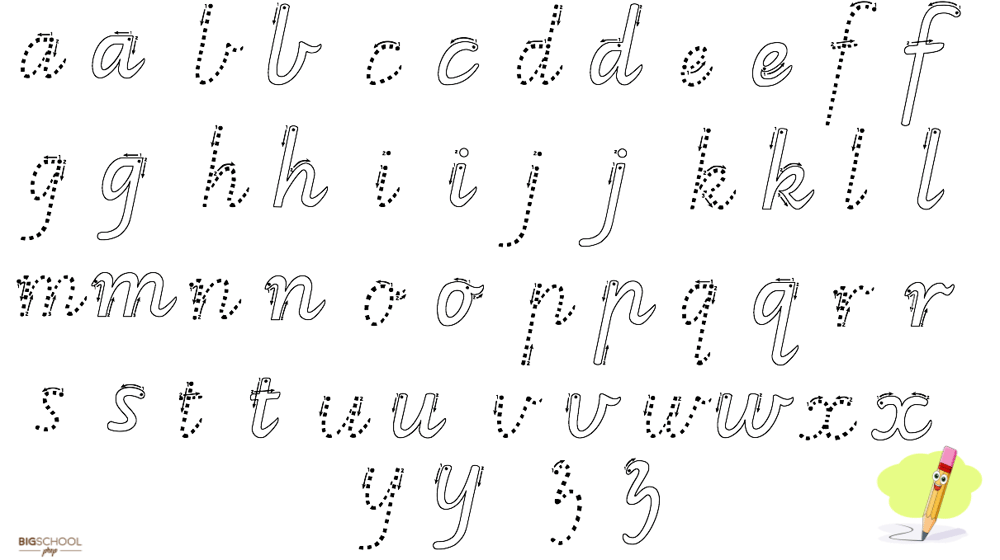 a a b b c c d d e e f f
g g h h i i j j k k l l
m m n n o o p p q q r r
s s t t u u v v w w x x
y y z z
BIGSCHOOL
prep